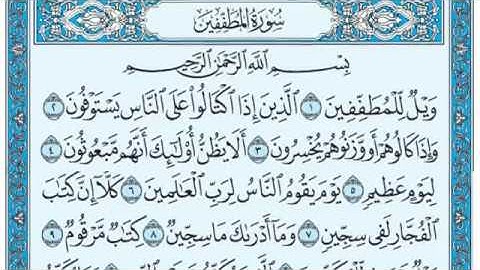 سُورَةُ المُطَفِّفِينَ
بِسْمِ اللَّهِ الرَّحْمَٰنِ الرَّحِيمِ
وَيْلٌ لِّلْمُطَفِّفِينَ ١ الَّذِينَ إِذَا اكْتَالُوا عَلَى النَّاسِ يَسْتَوْفُونَ ٢
وَإِذَا كَالُوهُمْ أَو وَّزَنُوهُمْ يُخْسِرُونَ ٣ أَلَا يَظُنُّ أُولَٰئِكَ أَنَّهُم مَّبْعُوثُونَ ٤
لِيَوْمٍ عَظِيمٍ ٥ يَوْمَ يَقُومُ النَّاسُ لِرَبِّ الْعَالَمِينَ ٦ كَلَّا إِنَّ كِتَابَ
الْفُجَّارِ لَفِي سِجِّينٍ ٧ وَمَا أَدْرَاكَ مَا سِجِّينٌ ٨ كِتَابٌ مَّرْقُومٌ ٩